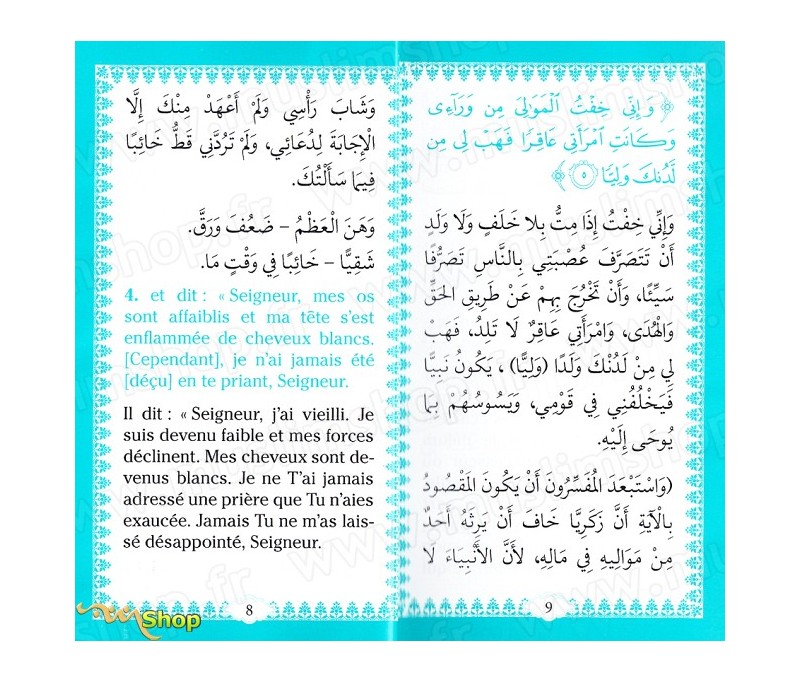 وَشَابَ رَأْسِي وَلَمْ أَعْهَدْ مِنْكَ إِلَّا
الْإِجَابَةَ لِدُعَائِي، وَلَمْ تَرُدَّنِي قَطُّ خَائِبًا
فِيمَا سَأَلْتُكَ.
وَهَنَ الْعَظْمُ – ضَعُفَ وَرَقَّ.
شَقِيًّا – خَائِبًا فِي وَقْتٍ مَا.
4. et dit : « Seigneur, mes os
sont affaiblis et ma tête s'est
enflammée de cheveux blancs.
[Cependant], je n'ai jamais été
[déçu] en te priant, Seigneur.
Il dit : « Seigneur, j'ai vieilli. Je
suis devenu faible et mes forces
déclinent. Mes cheveux sont de-
venus blancs. Je ne T'ai jamais
adressé une prière que Tu n'aies
exaucée. Jamais Tu ne m'as lais-
sé désappointé, Seigneur.
8
﴿ وَإِنِّي خِفْتُ الْمَوَالِيَ مِن وَرَاءِى
وَكَانَتِ امْرَأَتِي عَاقِرًا فَهَبْ لِي مِن
لَّدُنكَ وَلِيًّا ٥ ﴾
وَإِنِّي خِفْتُ إِذَا مِتُّ بِلَا خَلَفٍ وَلَا وَلَدٍ
أَنْ تَتَصَرَّفَ عُصْبَتِي بِالنَّاسِ تَصَرُّفًا
سَيِّئًا، وَأَنْ تَخْرُجَ بِهِمْ عَنْ طَرِيقِ الحَقِّ
وَالْهُدَى، وَامْرَأَتِي عَاقِرٌ لَا تَلِدُ، فَهَبْ
لِي مِنْ لَدُنْكَ وَلَدًا (وَلِيًّا) ، يَكُونُ نَبِيًّا
فَيَخْلُفُنِي فِي قَوْمِي، وَيَسُوسُهُمْ بِمَا
يُوحَى إِلَيْهِ.
(وَاسْتَبْعَدَ المُفَسِّرُونَ أَنْ يَكُونَ المَقْصُودُ
بِالْآيَةِ أَنَّ زَكَرِيَّا خَافَ أَنْ يَرِثَهُ أَحَدٌ
مِنْ مَوَالِيهِ فِي مَالِهِ، لأَنَّ الأَنْبِيَاءَ لَا
9
Shop
www.muslimshop.fr